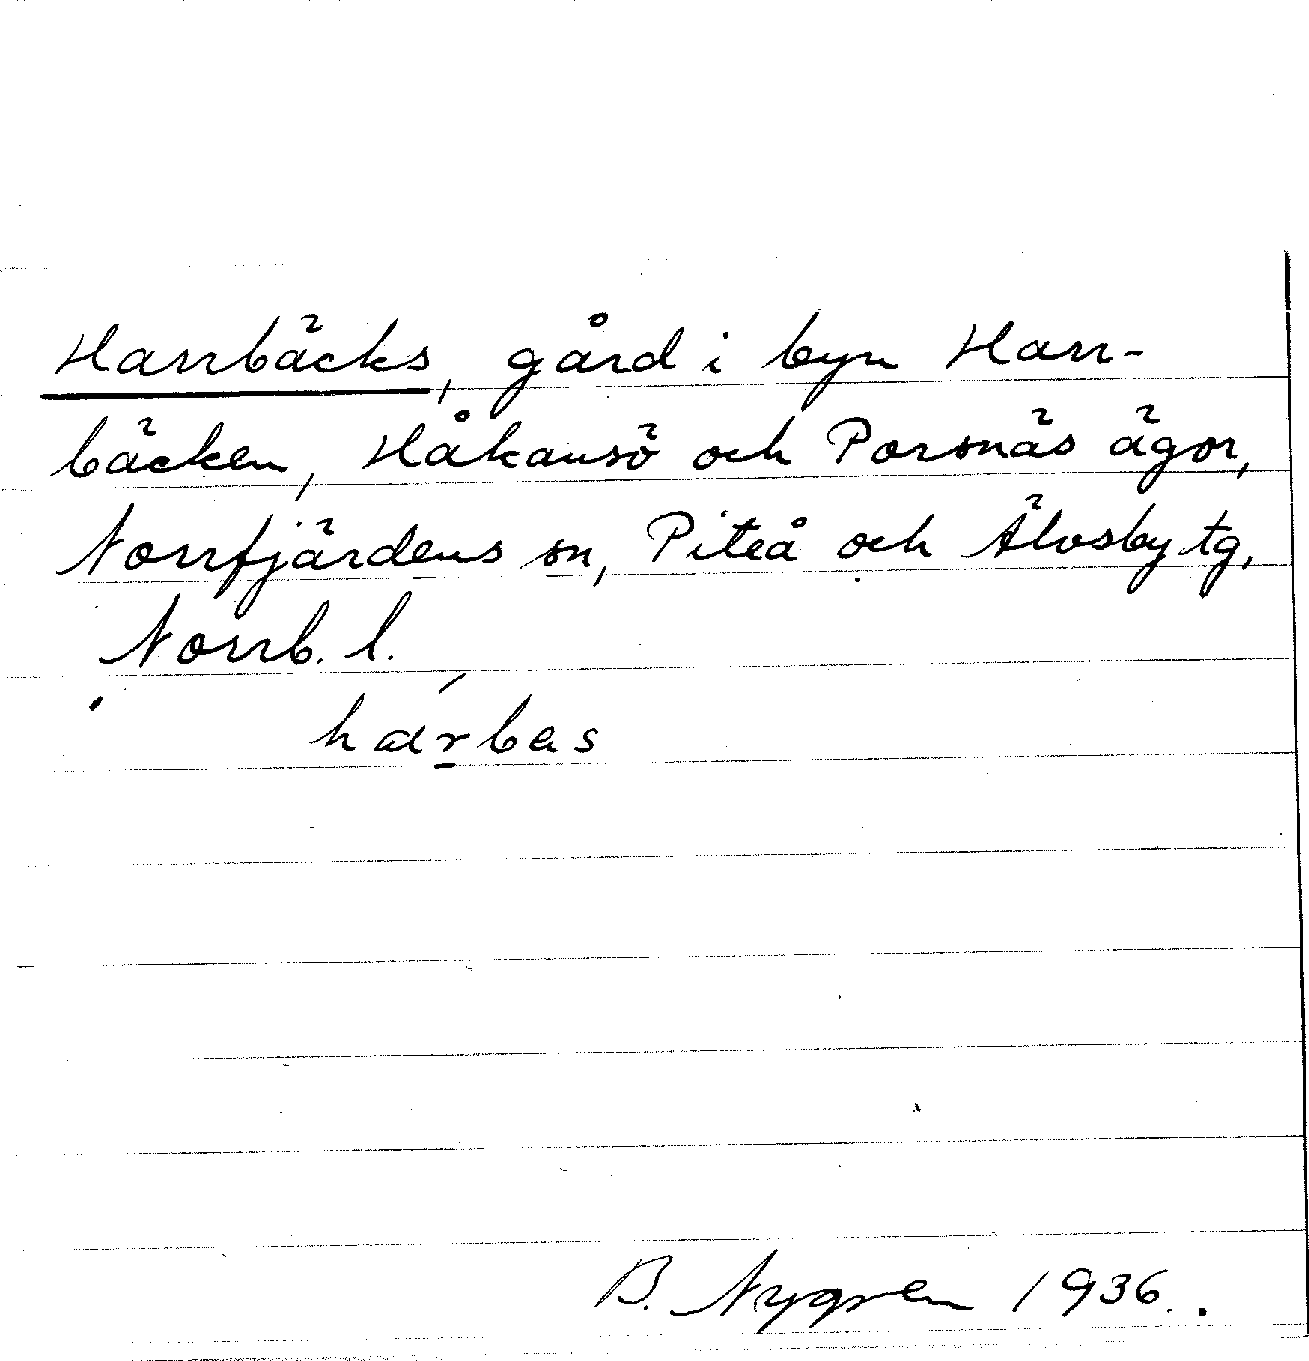 Harrbäcks, gård i byn Harr-
bäcken, Håkansö och Porsnäs ägor,
Norrfjärdens sn, Piteå och Älvsby tg,
Norrb. l.
hárbas
B. Nygren 1936.